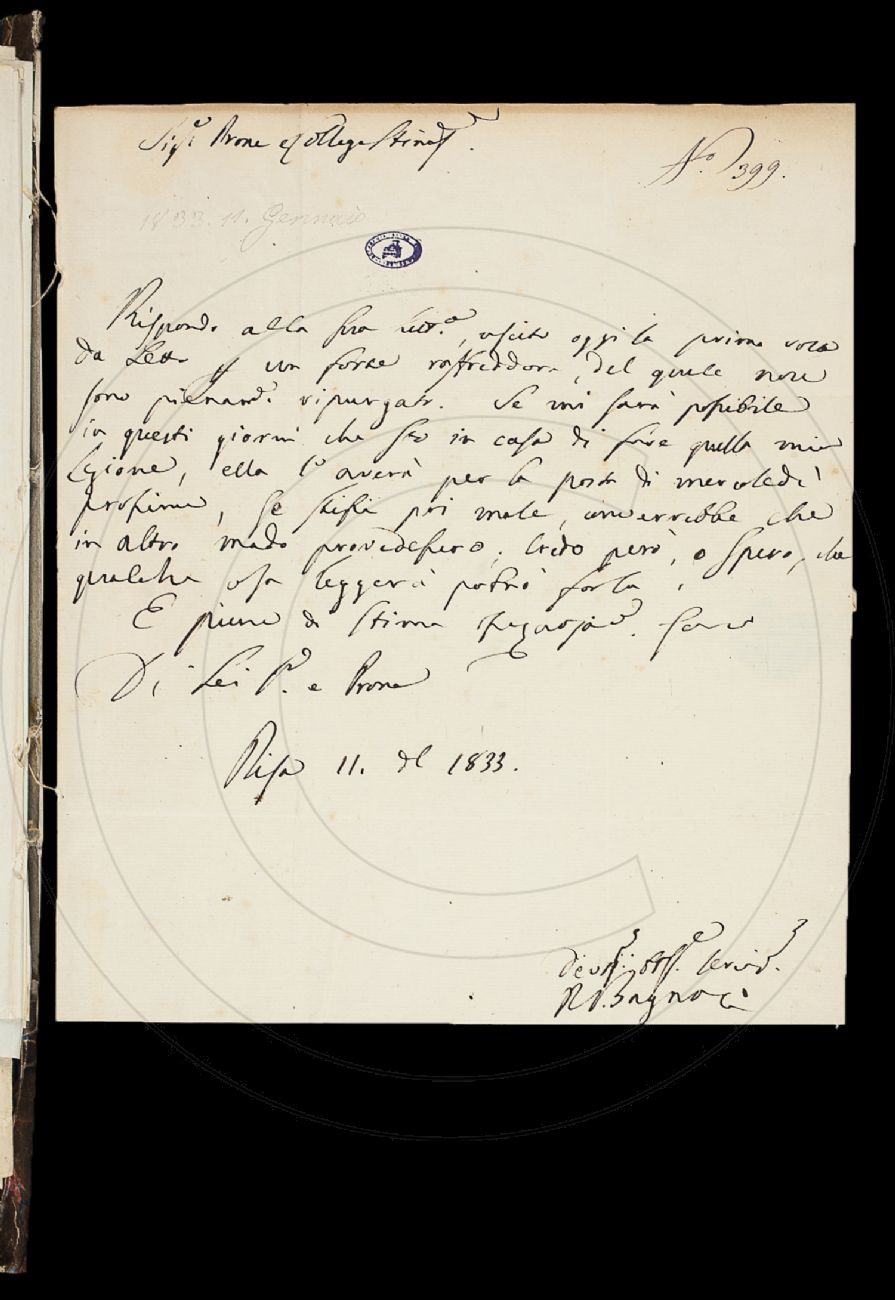 Sig.e Prone e Collega Stimo
No. 399.
1833. 11. Gennaio
Rispondo alla sua, uscito oggi la prima volta
da Letto p un forte raffreddore, del quale non
sono ripurgato. Se mi sarà possibile
in questi giorni che sto in casa di fare quella mia
Lezione, ella l'averà per la posta di mercoledì
prossimo, se stassi poi male, converrebbe che
in altro modo provvedessero; Credo però, o Spero, che
qualche cosa leggera potrò farla.
E pieno di stima
Di Lei S. e Prone
Pisa 11. del 1833.
Devot. Obb. Servid.